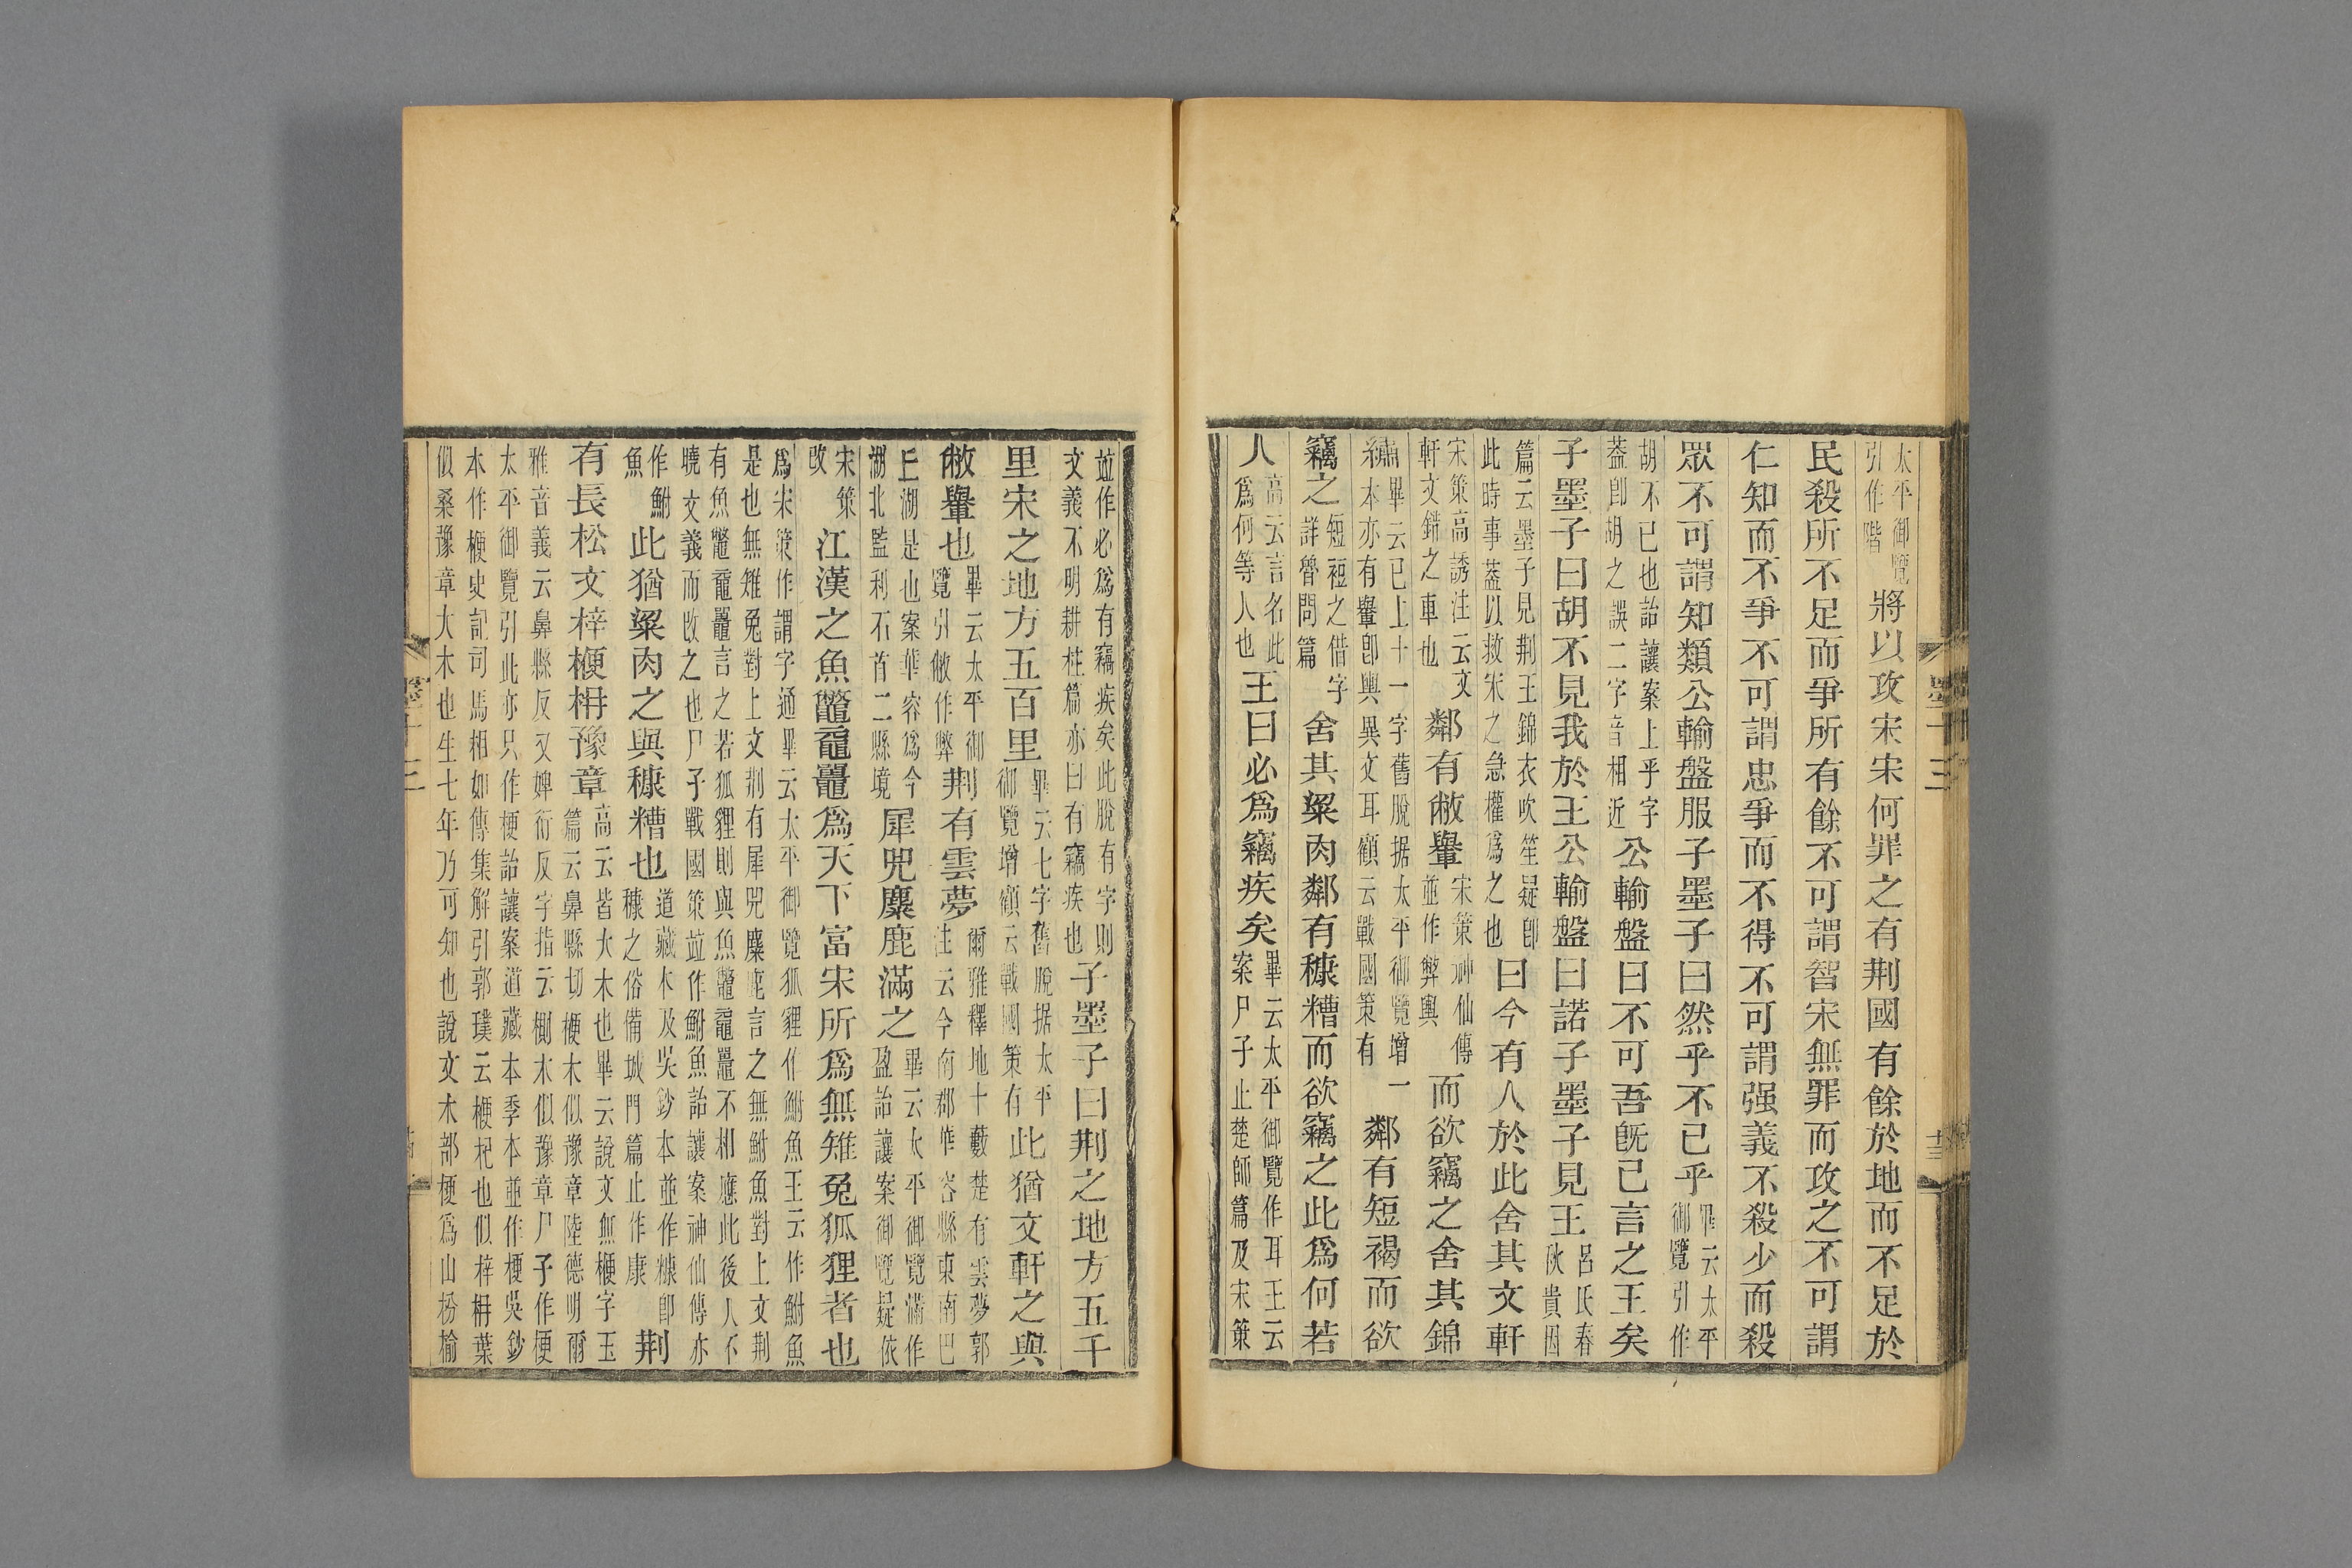 太平御覽引作階將以攻宋宋何罪之有荆國有餘於地而不足於
民殺所不足而爭所有餘不可謂智宋無罪而攻之不可謂
仁知而不爭不可謂忠爭而不得不可謂强義不殺少而殺
眾不可謂知類公輸盤服子墨子曰然乎不已乎畢云太平御覽引作
胡不已也詒讓案上乎字蓋卽胡之誤二字音相近公輸盤曰不可吾旣已言之王矣
子墨子曰胡不見我於王公輸盤曰諾子墨子見王呂氏春秋貴因
篇云墨子見荆王錦衣吹笙疑卽此時事蓋以救宋之急權爲之也曰今有人於此舍其文軒
宋策高誘注云文軒文錯之車也鄰有敝轝宋策神仙傳並作弊輿而欲竊之舍其錦
繡畢云已上十一字舊脫据太平御覽增一本亦有轝卽輿異文耳顧云戰國策有鄰有短褐而欲
竊之短裋之借字詳魯問篇舍其粱肉鄰有糠糟而欲竊之此爲何若
人高云言名此爲何等人也王曰必爲竊疾矣畢云太平御覽作耳王云案尸子止楚師篇及宋策
墨十三
十三
並作必爲有竊疾矣此脫有字則文義不明耕柱篇亦曰有竊疾也子墨子曰荆之地方五千
里宋之地方五百里畢云七字舊脫据太平御覽增顧云戰國策有此猶文軒之與
敝轝也畢云太平御覽引敝作弊荆有雲夢爾雅釋地十藪楚有雲夢郭注云今南郡華容縣東南巴
丘湖是也案華容爲今湖北監利石首二縣境犀兕麋鹿滿之畢云太平御覽滿作盈詒讓案御覽疑依
宋策改江漢之魚鼈黿鼉爲天下富宋所爲無雉兔狐狸者也
爲宋策作謂字通畢云太平御覽狐狸作鮒魚王云作鮒魚是也無雉兔對上文荆有犀兕麋鹿言之無鮒魚對上文荆
有魚鼈黿鼉言之若狐狸則與魚鼈黿鼉不相應此後人不曉文義而改之也尸子戰國策並作鮒魚詒讓案神仙傳亦
作鮒魚此猶粱肉之與糠糟也道藏本及吳鈔本並作糠卽穅之俗備城門篇止作康荆
有長松文梓楩枏豫章高云皆大木也畢云說文無楩字玉篇云鼻縣切楩木似豫章陸德明爾
雅音義云鼻縣反又婢衍反字指云楩木似豫章尸子作梗太平御覽引此亦只作梗詒讓案道藏本季本並作梗吳鈔
本作楩史記司馬相如傳集解引郭璞云楩杞也似梓枏葉似桑豫章大木也生七年乃可知也說文木部梗爲山枌榆